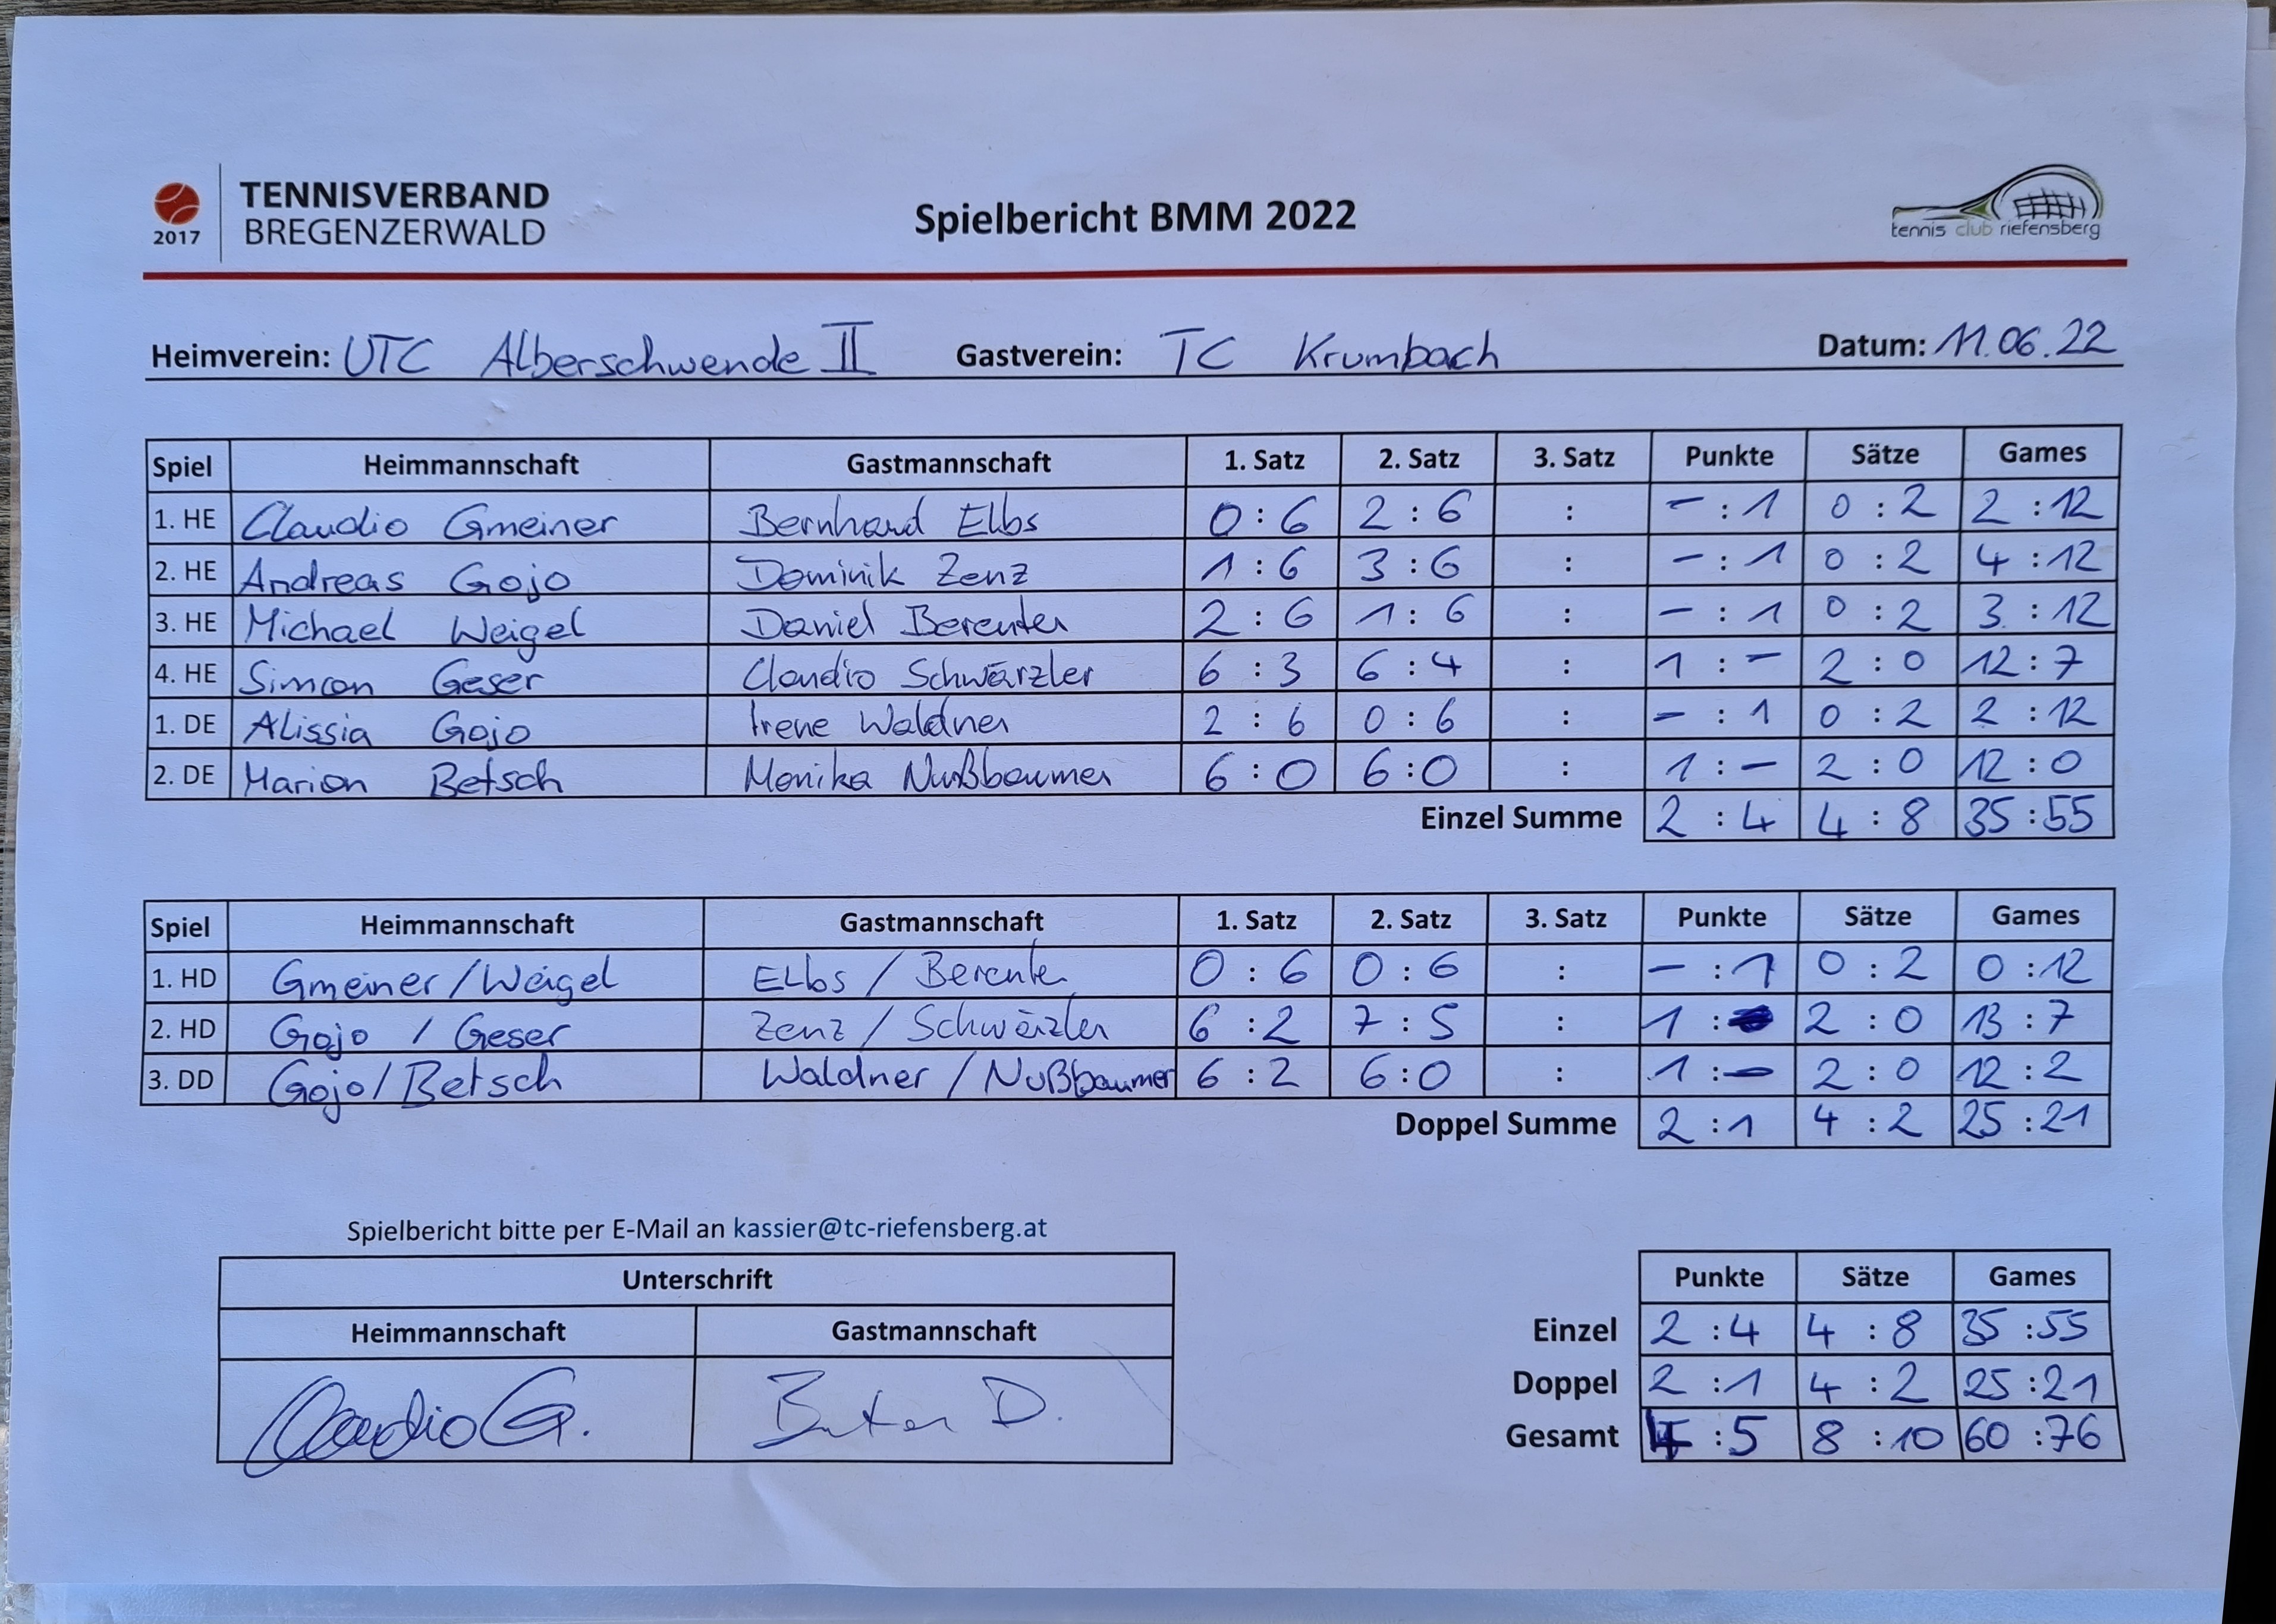 2017 TENNISVERBAND BREGENZERWALD
Spielbericht BMM 2022
tennis club riefensberg
Heimverein: UTC Alberschwende II Gastverein: TC Krumbach Datum: 11.06.22
Spiel Heimmannschaft Gastmannschaft 1. Satz 2. Satz 3. Satz Punkte Sätze Games
1. HE Claudio Gmeiner Bernhard Elbs 0 : 6 2 : 6 : – : 1 0 : 2 2 : 12
2. HE Andreas Gojo Dominik Zenz 1 : 6 3 : 6 : – : 1 0 : 2 4 : 12
3. HE Michael Weigel Daniel Berenter 2 : 6 1 : 6 : – : 1 0 : 2 3 : 12
4. HE Simon Geser Claudio Schwärzler 6 : 3 6 : 4 : 1 : – 2 : 0 12 : 7
1. DE Alissia Gojo Irene Waldner 2 : 6 0 : 6 : – : 1 0 : 2 2 : 12
2. DE Marion Betsch Monika Nußbaumer 6 : 0 6 : 0 : 1 : – 2 : 0 12 : 0
Einzel Summe 2 : 4 4 : 8 35 : 55
Spiel Heimmannschaft Gastmannschaft 1. Satz 2. Satz 3. Satz Punkte Sätze Games
1. HD Gmeiner / Weigel Elbs / Berenter 0 : 6 0 : 6 : – : 1 0 : 2 0 : 12
2. HD Gojo / Geser Zenz / Schwärzler 6 : 2 7 : 5 : 1 : – 2 : 0 13 : 7
3. DD Gojo / Betsch Waldner / Nußbaumer 6 : 2 6 : 0 : 1 : – 2 : 0 12 : 2
Doppel Summe 2 : 1 4 : 2 25 : 21
Spielbericht bitte per E-Mail an kassier@tc-riefensberg.at
Unterschrift
Heimmannschaft Gastmannschaft
Claudio G. D.
Punkte Sätze Games
Einzel 2 : 4 4 : 8 35 : 55
Doppel 2 : 1 4 : 2 25 : 21
Gesamt 4 : 5 8 : 10 60 : 76